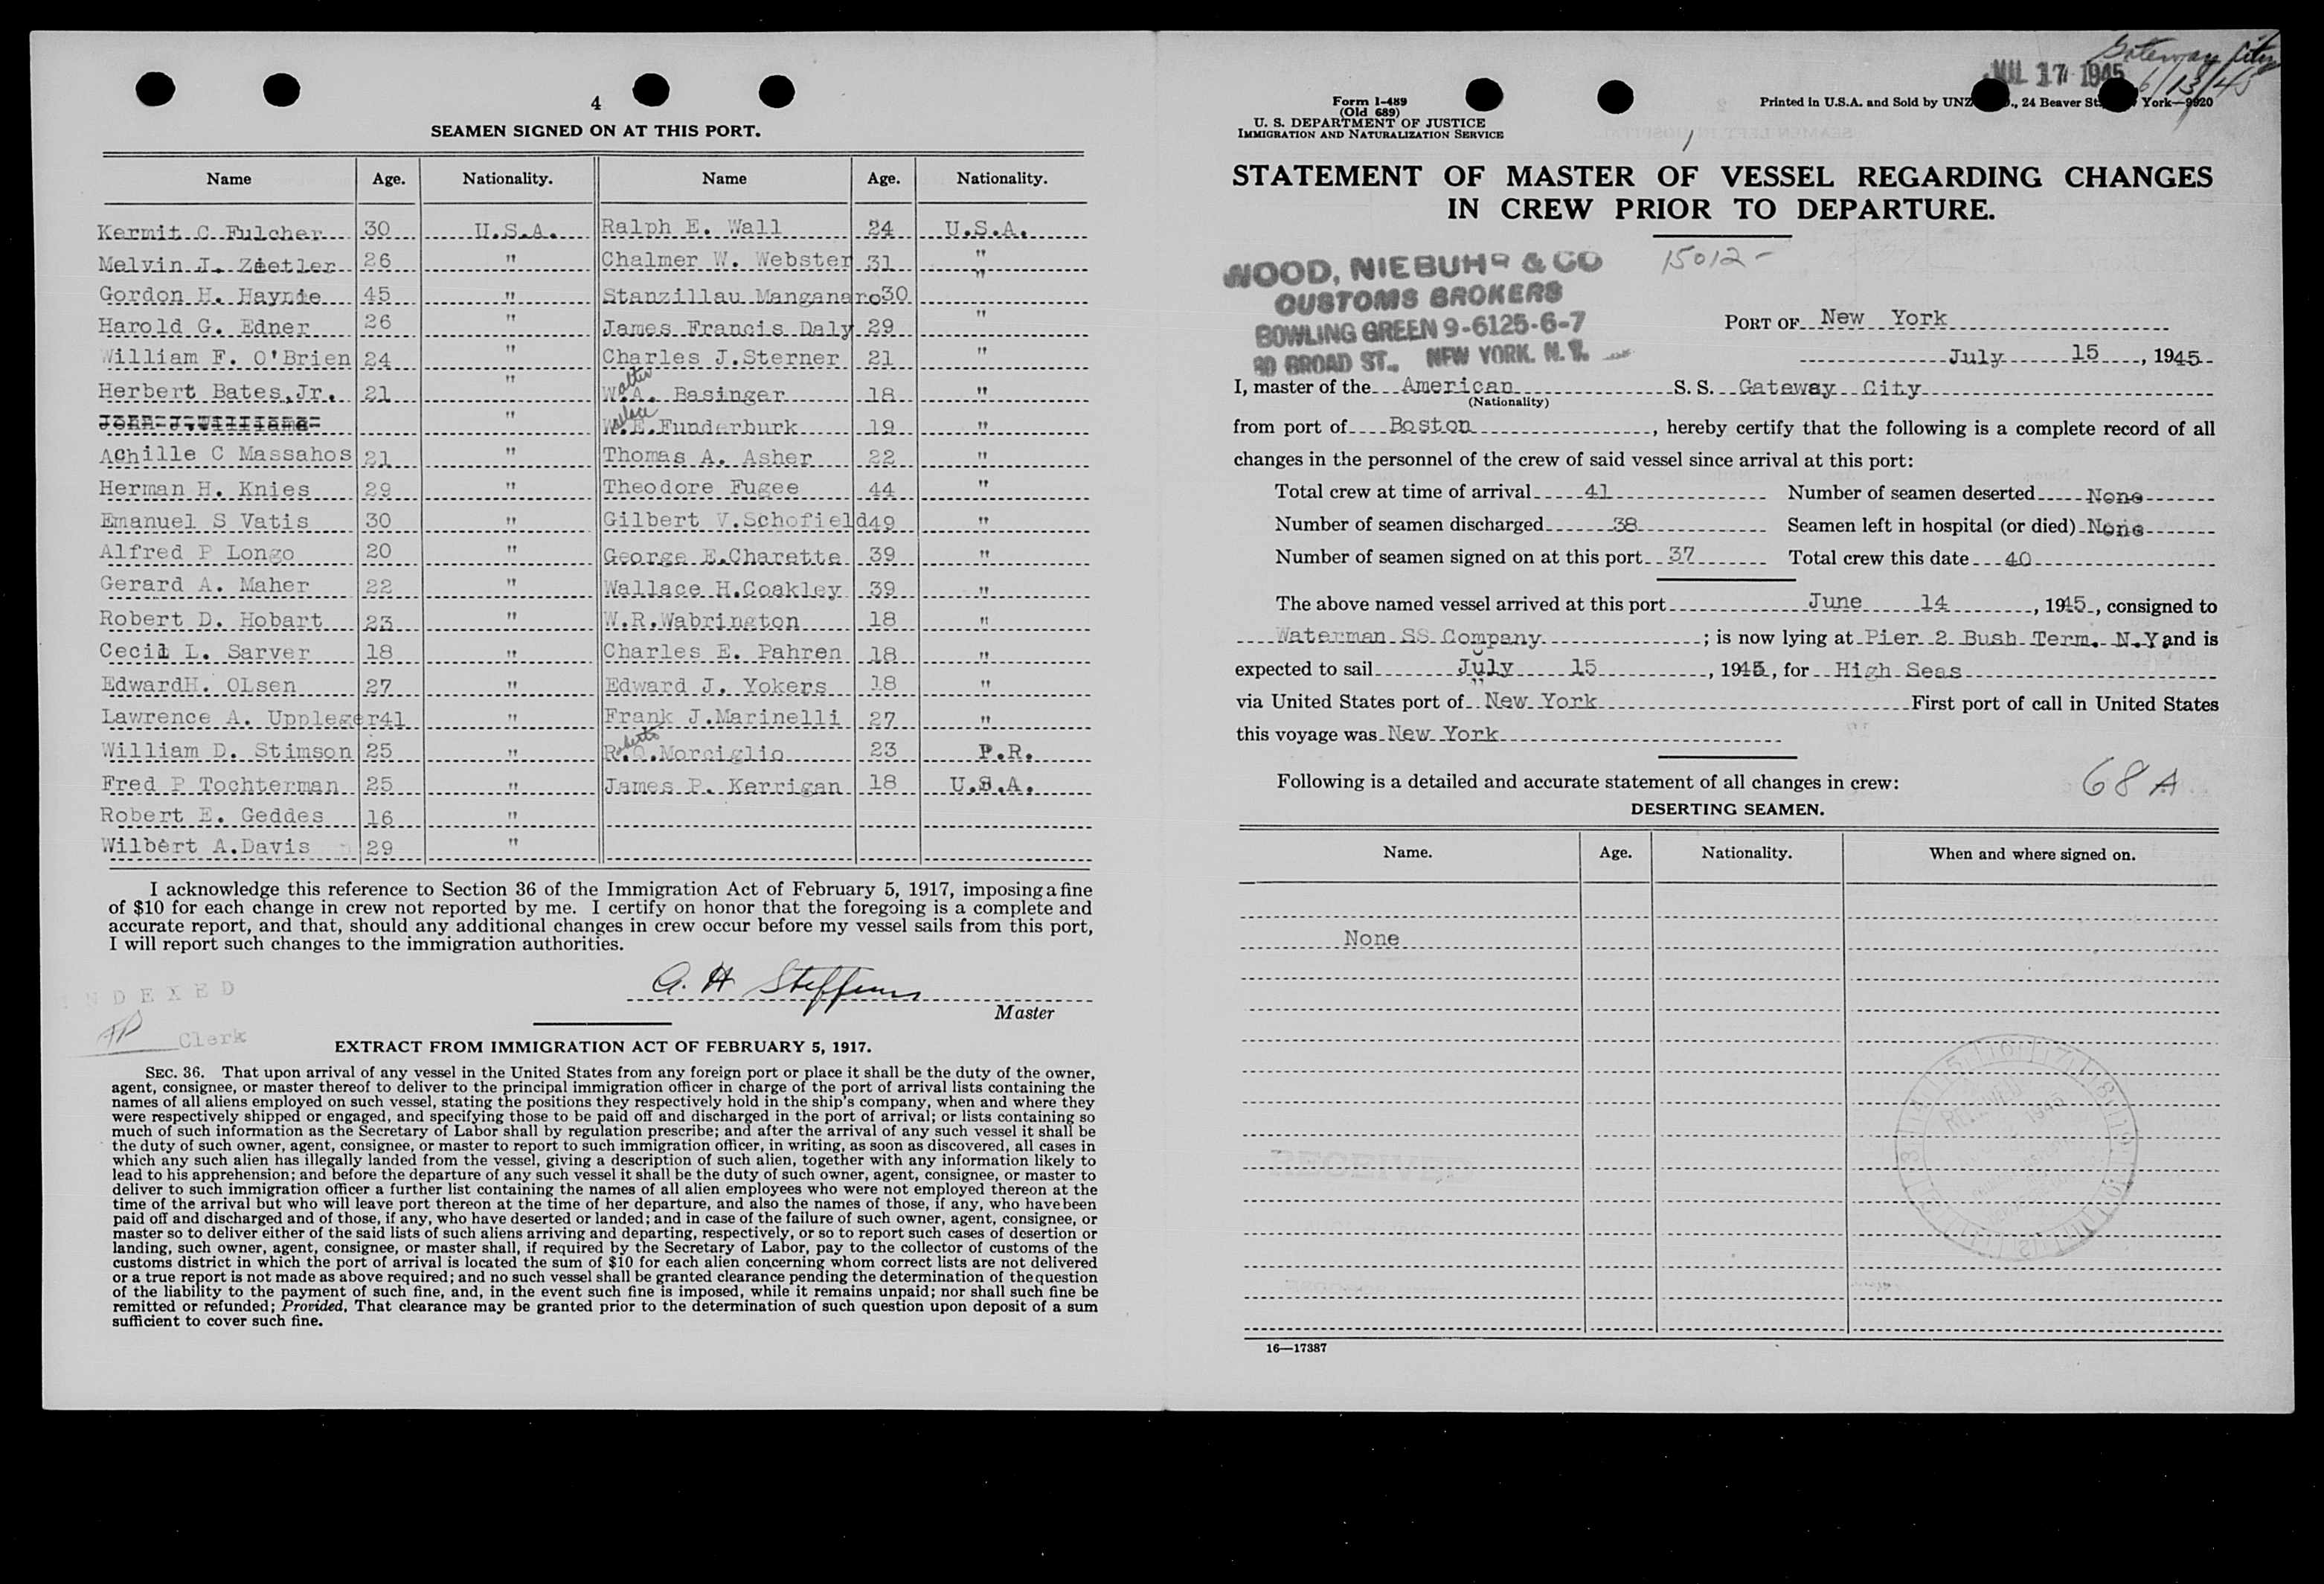 4
SEAMEN SIGNED ON AT THIS PORT.
Name Age. Nationality. Name Age. Nationality.
Kermit C Fulcher 30 U.S.A. Ralph E. Wall 24 U.S.A.
Melvin J. Zeetler 26 " Chalmer W. Webster 31 "
Gordon H. Haynie 45 " Stanzillau Manganaro 30 "
Harold G. Edner 26 " James Francis Daly 29 "
William F. O'Brien 24 " Charles J.Sterner 21 "
Herbert Bates,Jr. 21 " Walter W.A. Basinger 18 "
John J.Williams " W.E.Funderburk 19 "
Achille C Massahos 21 " Thomas A. Asher 22 "
Herman H. Knies 29 " Theodore Fugee 44 "
Emanuel S Vatis 30 " Gilbert V.Schofield 49 "
Alfred P Longo 20 " George E.Charette 39 "
Gerard A. Maher 22 " Wallace H.Coakley 39 "
Robert D. Hobart 23 " W.R.Wabrington 18 "
Cecil L. Sarver 18 " Charles E. Pahren 18 "
EdwardH. OLsen 27 " Edward J. Yokers 18 "
Lawrence A. Uppleger 41 " Frank J.Marinelli 27 "
William D. Stimson 25 " Roberto R.O.Morciglio 23 P.R.
Fred P Tochterman 25 " James P. Kerrigan 18 U.S.A.
Robert E. Geddes 16 "
Wilbert A.Davis 29 "
I acknowledge this reference to Section 36 of the Immigration Act of February 5, 1917, imposing a fine
of $10 for each change in crew not reported by me. I certify on honor that the foregoing is a complete and
accurate report, and that, should any additional changes in crew occur before my vessel sails from this port,
I will report such changes to the immigration authorities.
A. H Steffens
Master
INDEXED
Clerk
EXTRACT FROM IMMIGRATION ACT OF FEBRUARY 5, 1917.
SEC. 36. That upon arrival of any vessel in the United States from any foreign port or place it shall be the duty of the owner,
agent, consignee, or master thereof to deliver to the principal immigration officer in charge of the port of arrival lists containing the
names of all aliens employed on such vessel, stating the positions they respectively hold in the ship's company, when and where they
were respectively shipped or engaged, and specifying those to be paid off and discharged in the port of arrival; or lists containing so
much of such information as the Secretary of Labor shall by regulation prescribe; and after the arrival of any such vessel it shall be
the duty of such owner, agent, consignee, or master to report to such immigration officer, in writing, as soon as discovered, all cases in
which any such alien has illegally landed from the vessel, giving a description of such alien, together with any information likely to
lead to his apprehension; and before the departure of any such vessel it shall be the duty of such owner, agent, consignee, or master to
deliver to such immigration officer a further list containing the names of all alien employees who were not employed thereon at the
time of the arrival but who will leave port thereon at the time of her departure, and also the names of those, if any, who have been
paid off and discharged and of those, if any, who have deserted or landed; and in case of the failure of such owner, agent, consignee, or
master so to deliver either of the said lists of such aliens arriving and departing, respectively, or so to report such cases of desertion or
landing, such owner, agent, consignee, or master shall, if required by the Secretary of Labor, pay to the collector of customs of the
customs district in which the port of arrival is located the sum of $10 for each alien concerning whom correct lists are not delivered
or a true report is not made as above required; and no such vessel shall be granted clearance pending the determination of the question
of the liability to the payment of such fine, and, in the event such fine is imposed, while it remains unpaid; nor shall such fine be
remitted or refunded; Provided, That clearance may be granted prior to the determination of such question upon deposit of a sum
sufficient to cover such fine.
Gateway City
JUL 17 1945 6/13/45
Form I-489
(Old 689)
U. S. DEPARTMENT OF JUSTICE
IMMIGRATION AND NATURALIZATION SERVICE
Printed in U.S.A. and Sold by UNZ ., 24 Beaver St York—9920
STATEMENT OF MASTER OF VESSEL REGARDING CHANGES
IN CREW PRIOR TO DEPARTURE.
15012-
WOOD, NIEBUHR & CO
CUSTOMS BROKERS
BOWLING GREEN 9-6125-6-7
80 BROAD ST., NEW YORK. N. Y.
PORT OF New York
July 15, 1945
I, master of the American S. S. Gateway City
(Nationality)
from port of Boston, hereby certify that the following is a complete record of all
changes in the personnel of the crew of said vessel since arrival at this port:
Total crew at time of arrival 41 Number of seamen deserted None
Number of seamen discharged 38 Seamen left in hospital (or died) None
Number of seamen signed on at this port 37 Total crew this date 40
The above named vessel arrived at this port June 14, 1945, consigned to
Waterman SS Company; is now lying at Pier 2 Bush Term. N.Y and is
expected to sail July 15, 1945, for High Seas
via United States port of New York First port of call in United States
this voyage was New York
Following is a detailed and accurate statement of all changes in crew:
68 A
DESERTING SEAMEN.
Name. Age. Nationality. When and where signed on.
None
RECEIVED
RECEIVED 1945
16—17387